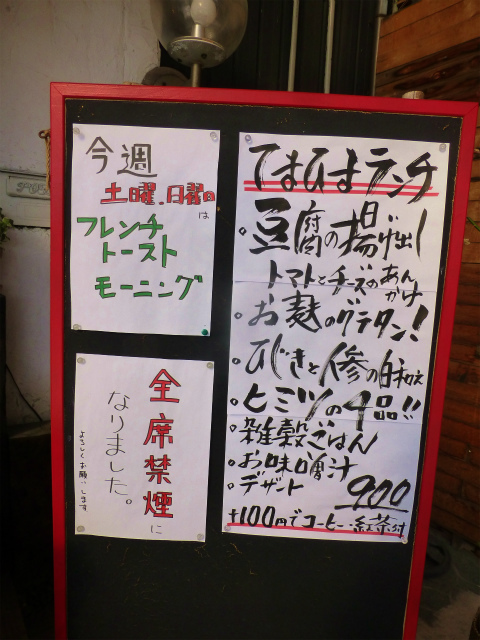 今週
土曜.日曜日
は
フレンチ
トースト
モーニング
全席禁煙に
なりました。
よろしくお願いします
てまひまランチ
。豆腐の揚げ出し
トマトとチーズのあん
かけ
。お麩のグラタン!
。ひじきと人参の白和え
。ヒミツの4品!!
。雑穀ごはん
。お味噌汁
。デザート
900
+100円でコーヒー・紅茶付